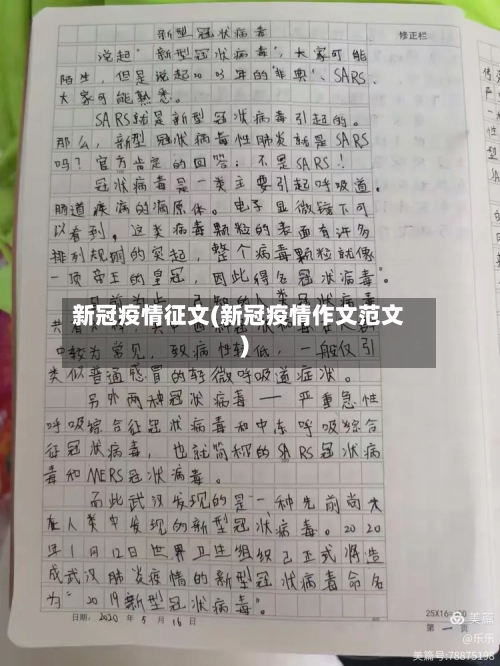 新型冠状病毒
修正栏
说起"新型冠状病毒",大家可能
陌生,但是说起2003年的"非典"、SARS、
大家可能熟悉。
SARS就是新型冠状病毒引起的。
那么,新型冠状病毒性肺炎就是SARS
吗?官方肯定的回答:不是SARS!
冠状病毒是一类主要引起呼吸道、
肠道疾病的病原体。电子显微镜下可
以看到,这类病毒颗粒的表面有许多
排列规则的突起,整个病毒颗粒就像
一顶帝王的皇冠,因此得名冠状病毒。
新冠疫情征文(新冠疫情作文范文
)
中较为常见,致病性较低,一般仅引
类似普通感冒的轻微呼吸道症状。
另外两种冠状病毒——严重急性
呼吸综合征冠状病毒和中东呼吸综合
征冠状病毒,也就简称的SARS冠状病
毒和MERS冠状病毒。
而此武汉发现的是一种先前尚未
在人类中发现的新型冠状病毒。2020
年1月12日世界卫生组织已正式将造
成武汉肺炎疫情的新型冠状病毒命名
为"2019新型冠状病毒"。
日期:2020年5月16日
25X16=
第 页
美篇
@乐乐
美篇号:78875198